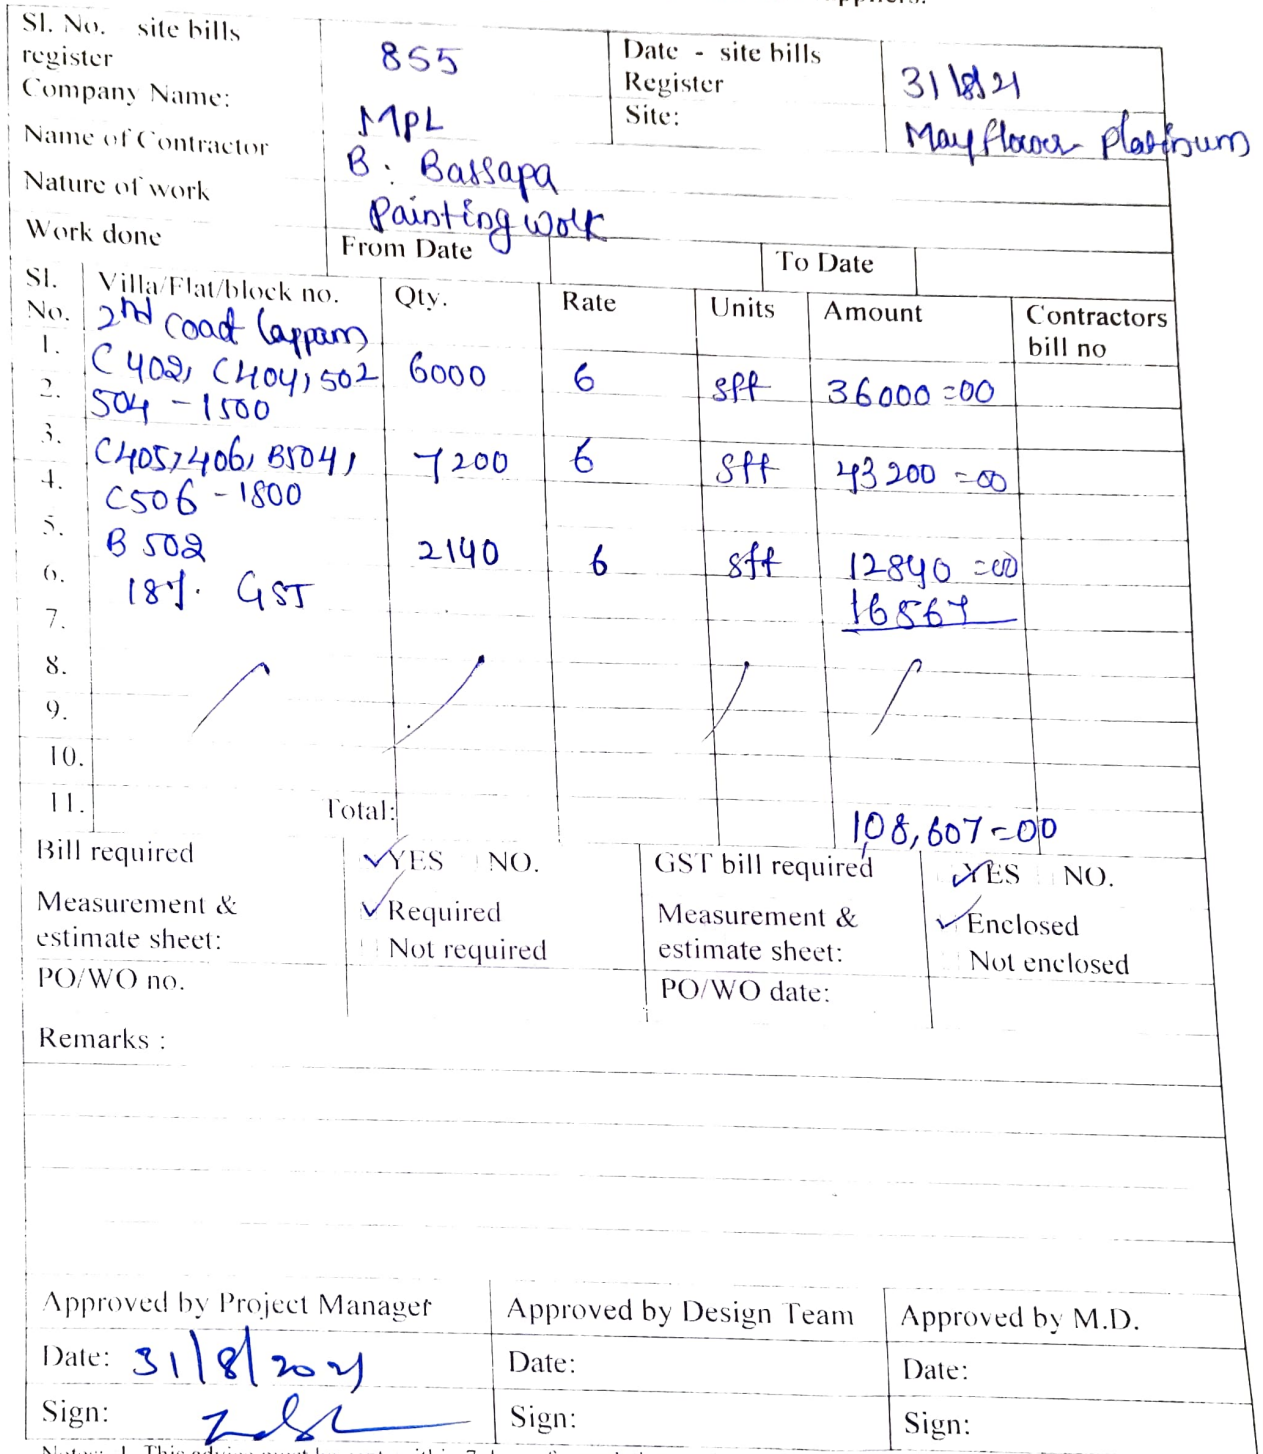 Sl. No. site bills register 855 Date - site bills Register 31/8/21
Company Name: MPL Site: Mayflower Platinum
Name of Contractor B. Bassapa
Nature of work Painting work
Work done From Date To Date
Sl. No. Villa/Flat/block no. Qty. Rate Units Amount Contractors bill no
2nd coat lappam
1. C 402, C404, 502 6000 6 sft 36000=00
2. 504 - 1500
3. C405, 406, B504, 7200 6 sft 43200=00
4. C506 - 1800
5. B 502 2140 6 sft 12840=00
6. 18%. GST 16567
7.
8.
9.
10.
11. Total: 108,607=00
Bill required YES NO. GST bill required YES NO.
Measurement & estimate sheet: Required Measurement & estimate sheet: Enclosed
Not required Not enclosed
PO/WO no. PO/WO date:
Remarks :
Approved by Project Manager Approved by Design Team Approved by M.D.
Date: 31/8/2021 Date: Date:
Sign: Sign: Sign: